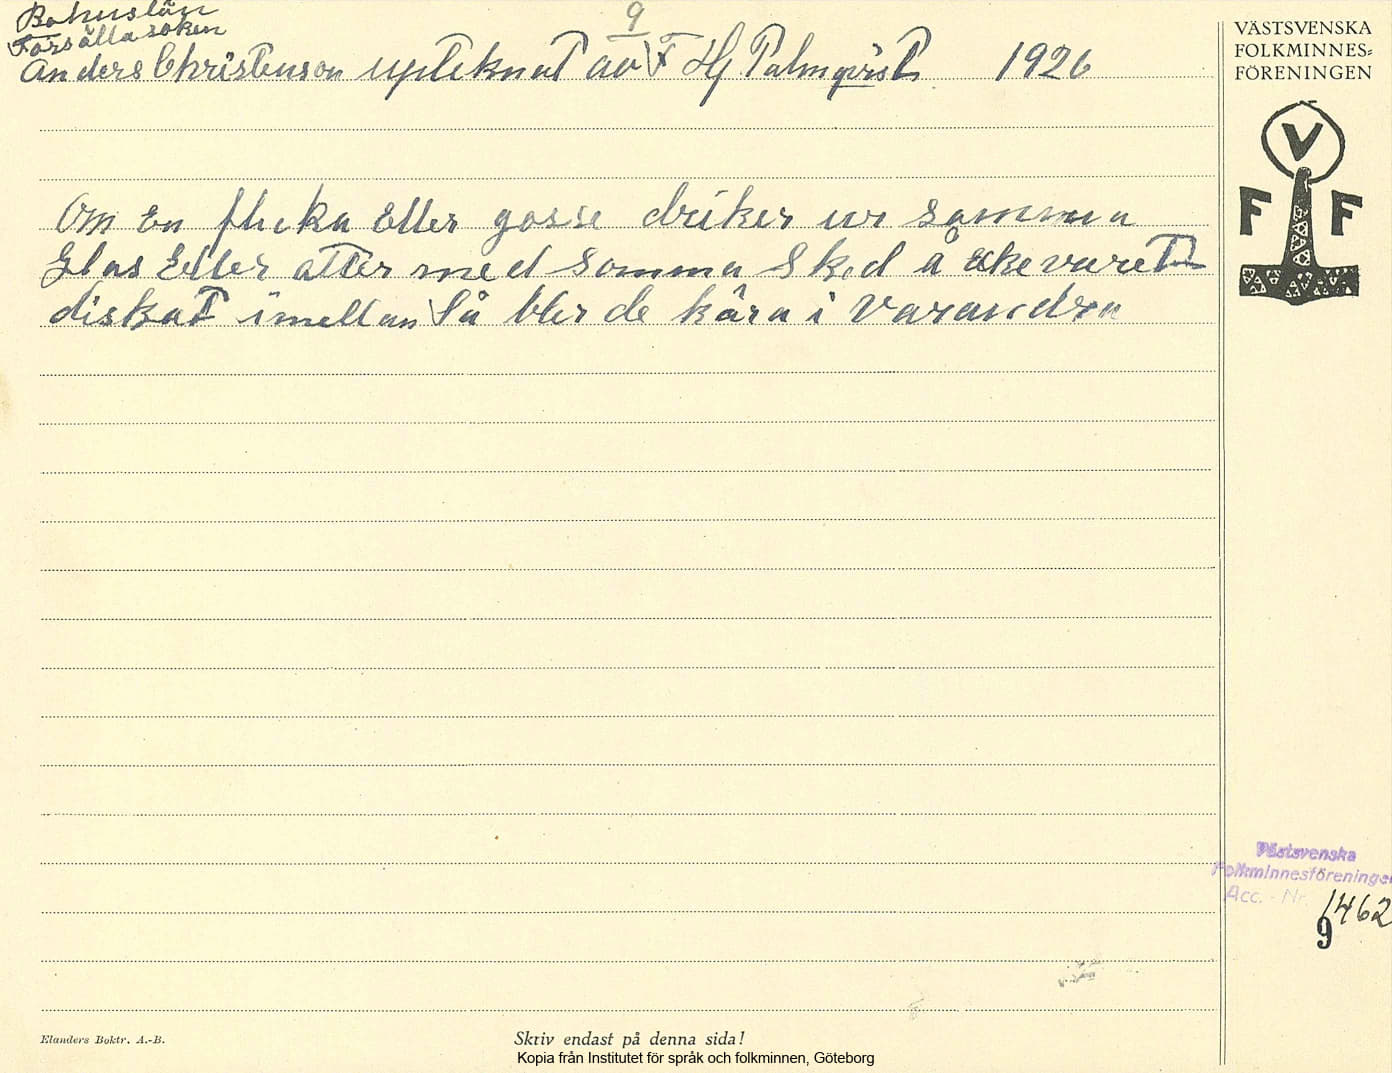 Bohuslän
9
Forsälla soken
Anders Christenson upteknat av F Hj Palmqvist 1926
Om En flicka Eller gosse driker ur samma
Glas Eller ätter med somma Sked å Ekevaret
diskat imellan Så bler de kära i varandra
VÄSTSVENSKA
FOLKMINNES-
FÖRENINGEN
V
F F
Västsvenska
Folkminnesföreningen
Acc. - Nr. 1462
9
Elanders Boktr. A.-B.
Skriv endast på denna sida!
Kopia från Institutet för språk och folkminnen, Göteborg